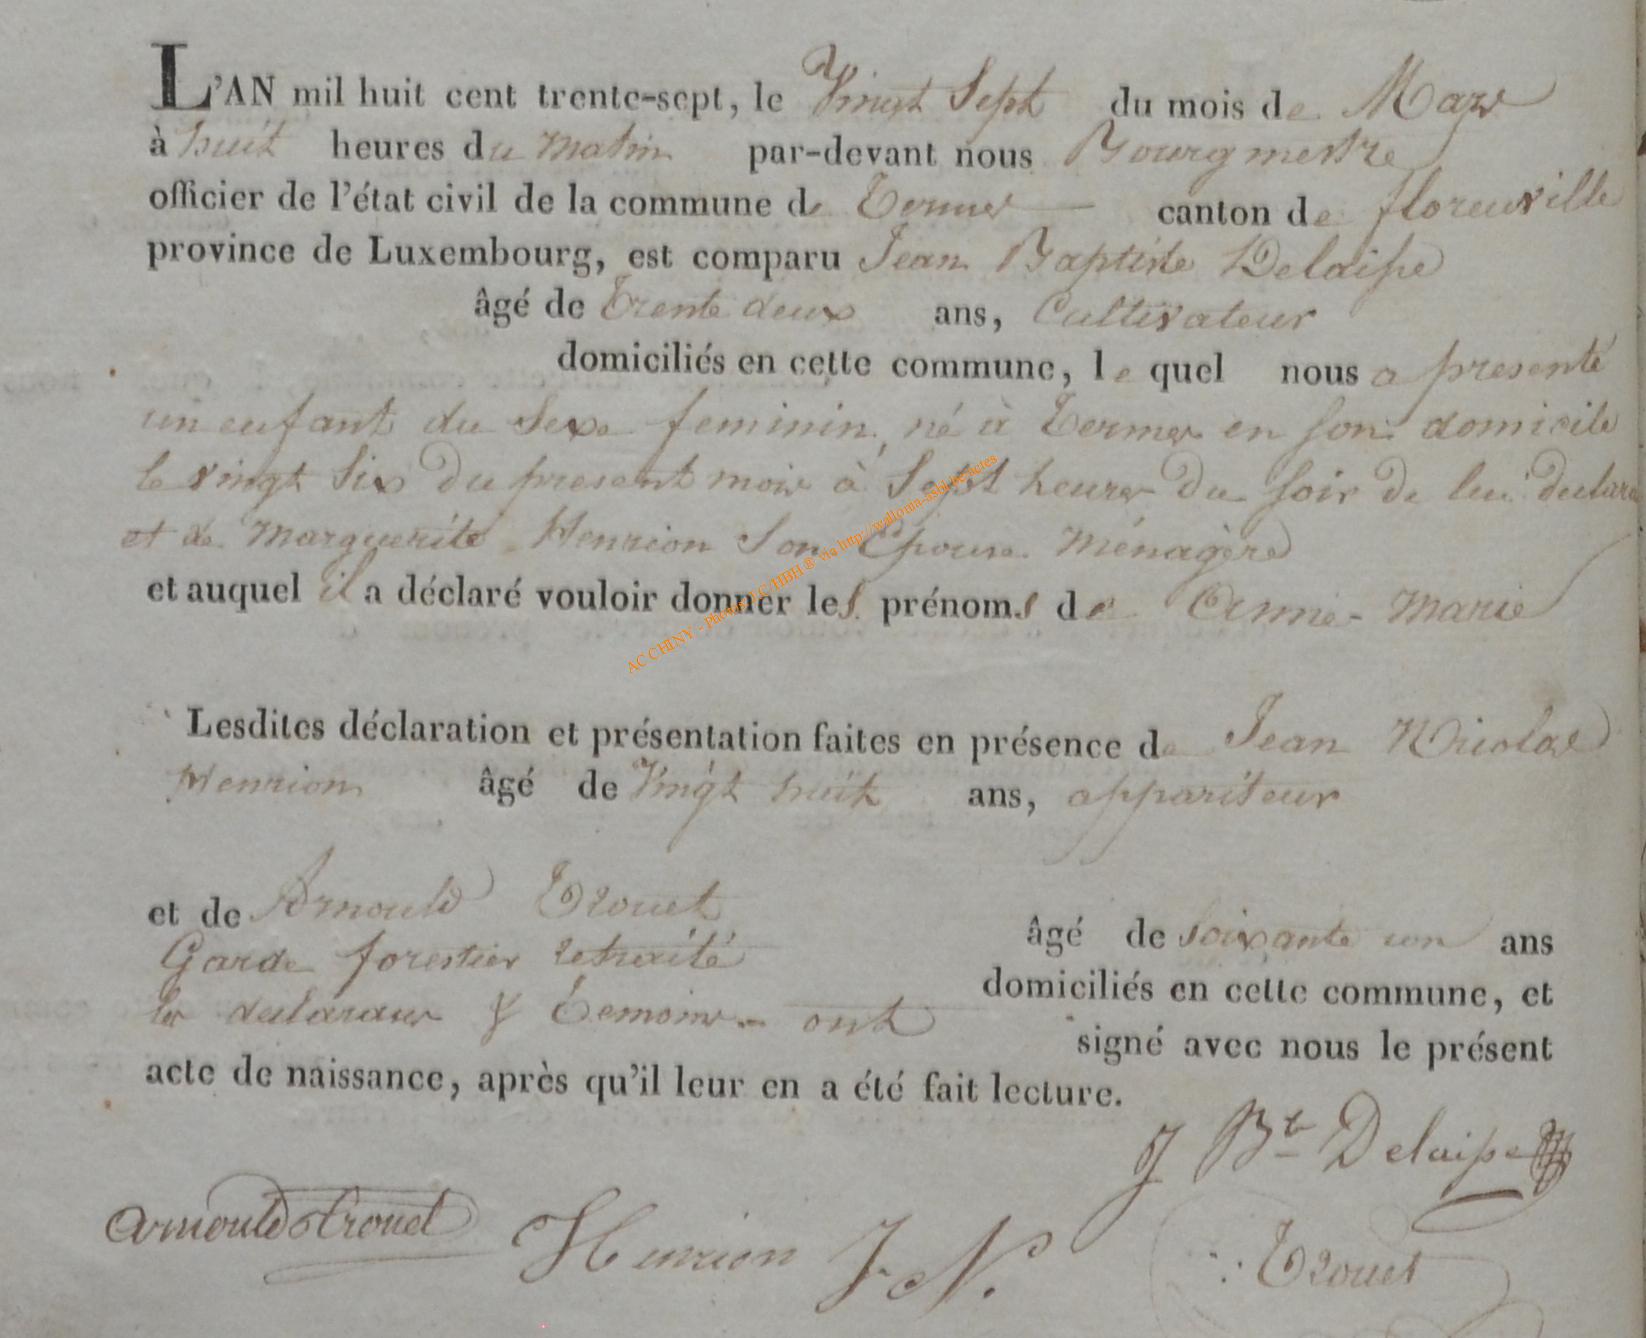 L'AN mil huit cent trente-sept, le Vingt Sept du mois de Mars
à huit heures du matin par-devant nous Bourgmestre
officier de l'état civil de la commune de Termes canton de florenville
province de Luxembourg, est comparu Jean Baptiste Delaisse
âgé de Trente deux ans, Cultivateur
domiciliés en cette commune, le quel nous a presenté
un enfant du Sexe feminin, né à Termes en son domicile
le vingt Six du present mois à Sept heures du soir de lui declarant
et de Marguerite Henrion Son Epouse Ménagère
et auquel il a déclaré vouloir donner les prénoms de Anne-Marie
AC CHINY - Photos AC HBH ® via http://wallonia-asbl.be/actes
Lesdites déclaration et présentation faites en présence de Jean Nicolas
Henrion âgé de Vingt huit ans, appariteur
et de Arnould Trouet âgé de soixante un ans
Garde forestier retraité domiciliés en cette commune, et
les declarans & témoins ont signé avec nous le présent
acte de naissance, après qu'il leur en a été fait lecture.
J Bte Delaisse
arnould trouet Henrion J. N. Trouet